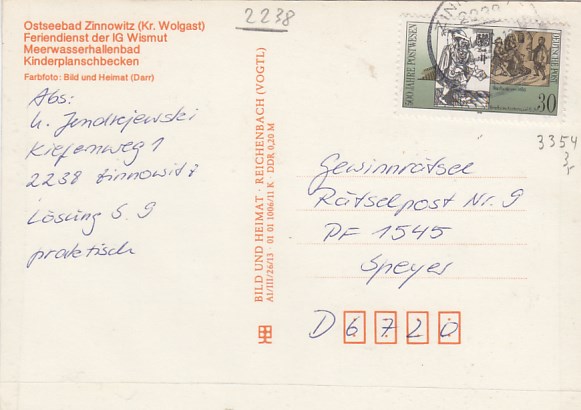 Ostseebad Zinnowitz (Kr. Wolgast)
Feriendienst der IG Wismut
Meerwasserhallenbad
Kinderplanschbecken
Farbfoto: Bild und Heimat (Darr)
2238
Abs:
U. Jendrejewski
Kiefenweg 1
2238 Zinnowitz
Lösung S. 9
praktisch
BILD UND HEIMAT · REICHENBACH (VOGTL)
A1/III/26/13 · 01 01 1006/11 K · DDR 0,20 M
500 JAHRE POSTWESEN
DDR
30
3354
Gewinnrätsel
Rätselpost Nr. 9
PF 1545
Speyer
D 6720